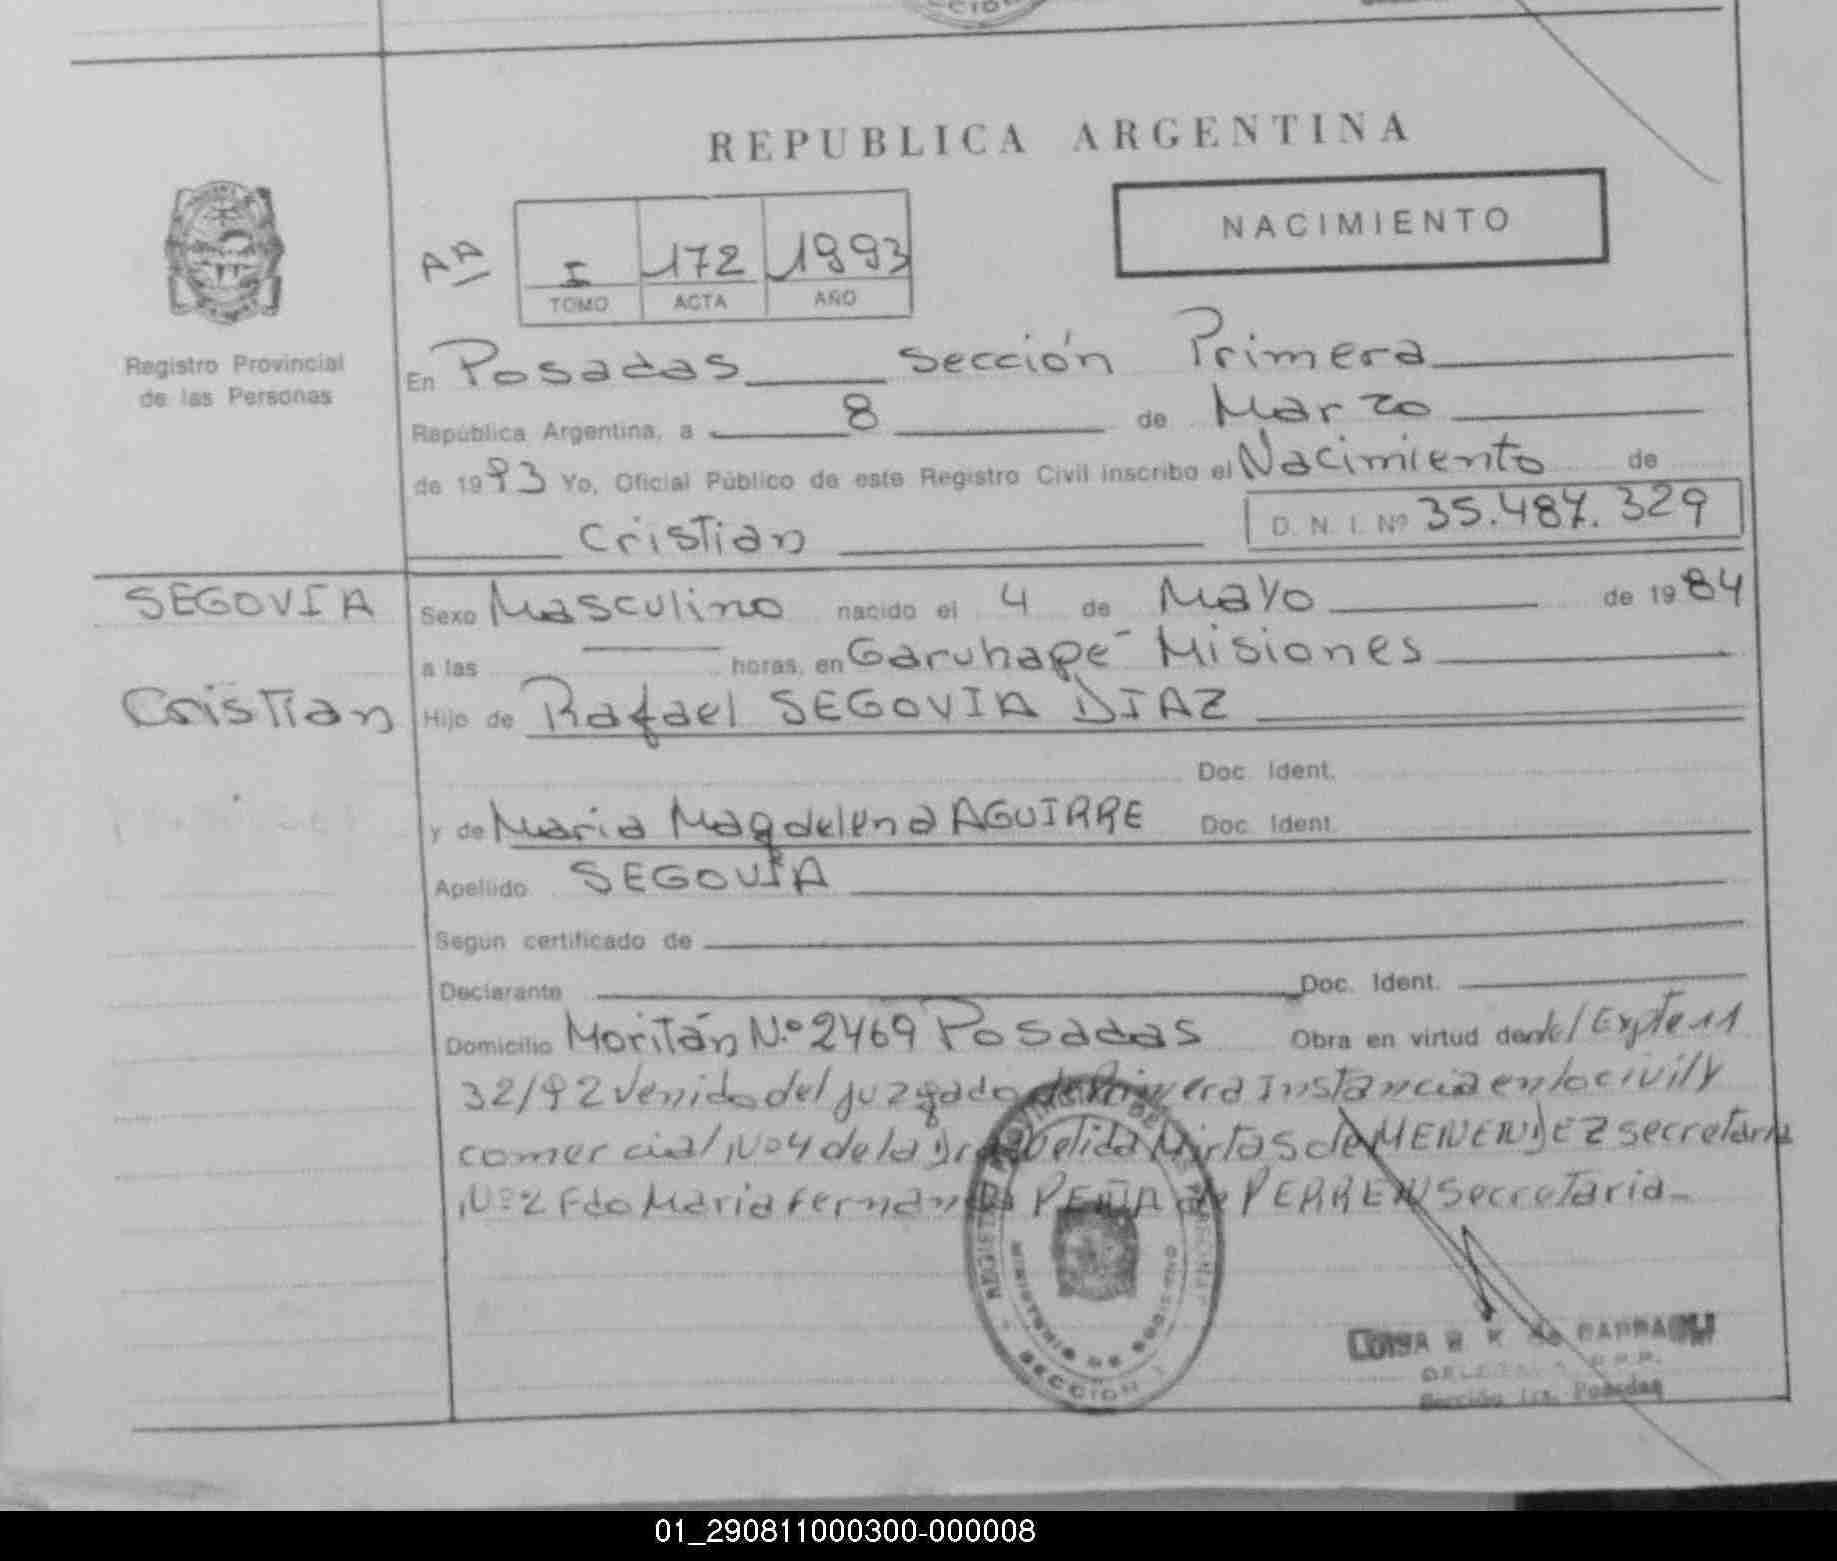 REPUBLICA ARGENTINA
NACIMIENTO
AA
I 172 1993
TOMO ACTA AÑO
Registro Provincial
de las Personas
En Posadas sección Primera
República Argentina, a 8 de Marzo
de 1993 Yo, Oficial Público de este Registro Civil inscribo el Nacimiento de
Cristian D. N. I. Nº 35.487.329
SEGOVIA
Cristian
Sexo Masculino nacido el 4 de Mayo de 1984
a las horas, en Garuhapé - Misiones
Hijo de Rafael SEGOVIA DIAZ
Doc. Ident.
y de Maria Magdelena AGUIRRE Doc. Ident.
Apellido SEGOVIA
Según certificado de
Declarante Doc. Ident.
Domicilio Moritán N.º 2469 Posadas Obra en virtud de del Expte 11
32/92 venido del juzgado de Primera Instancia en lo civil y
comercial Nº 4 de la Dra Mirta S de MENENDEZ secretaria
Nº 2 Fdo Maria Fernanda PEÑA de PERREN Secretaria
MINISTERIO DE GOBIERNO
SECCION 1
Sección 1ra. Posadas
01_290811000300-000008